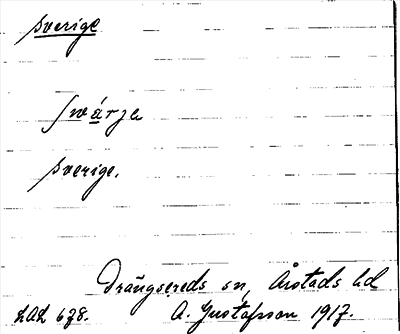 Sverige
swárje
Sverige.
Drängsereds sn, Årstads hd
LAL 678. A. Gustafsson 1917.